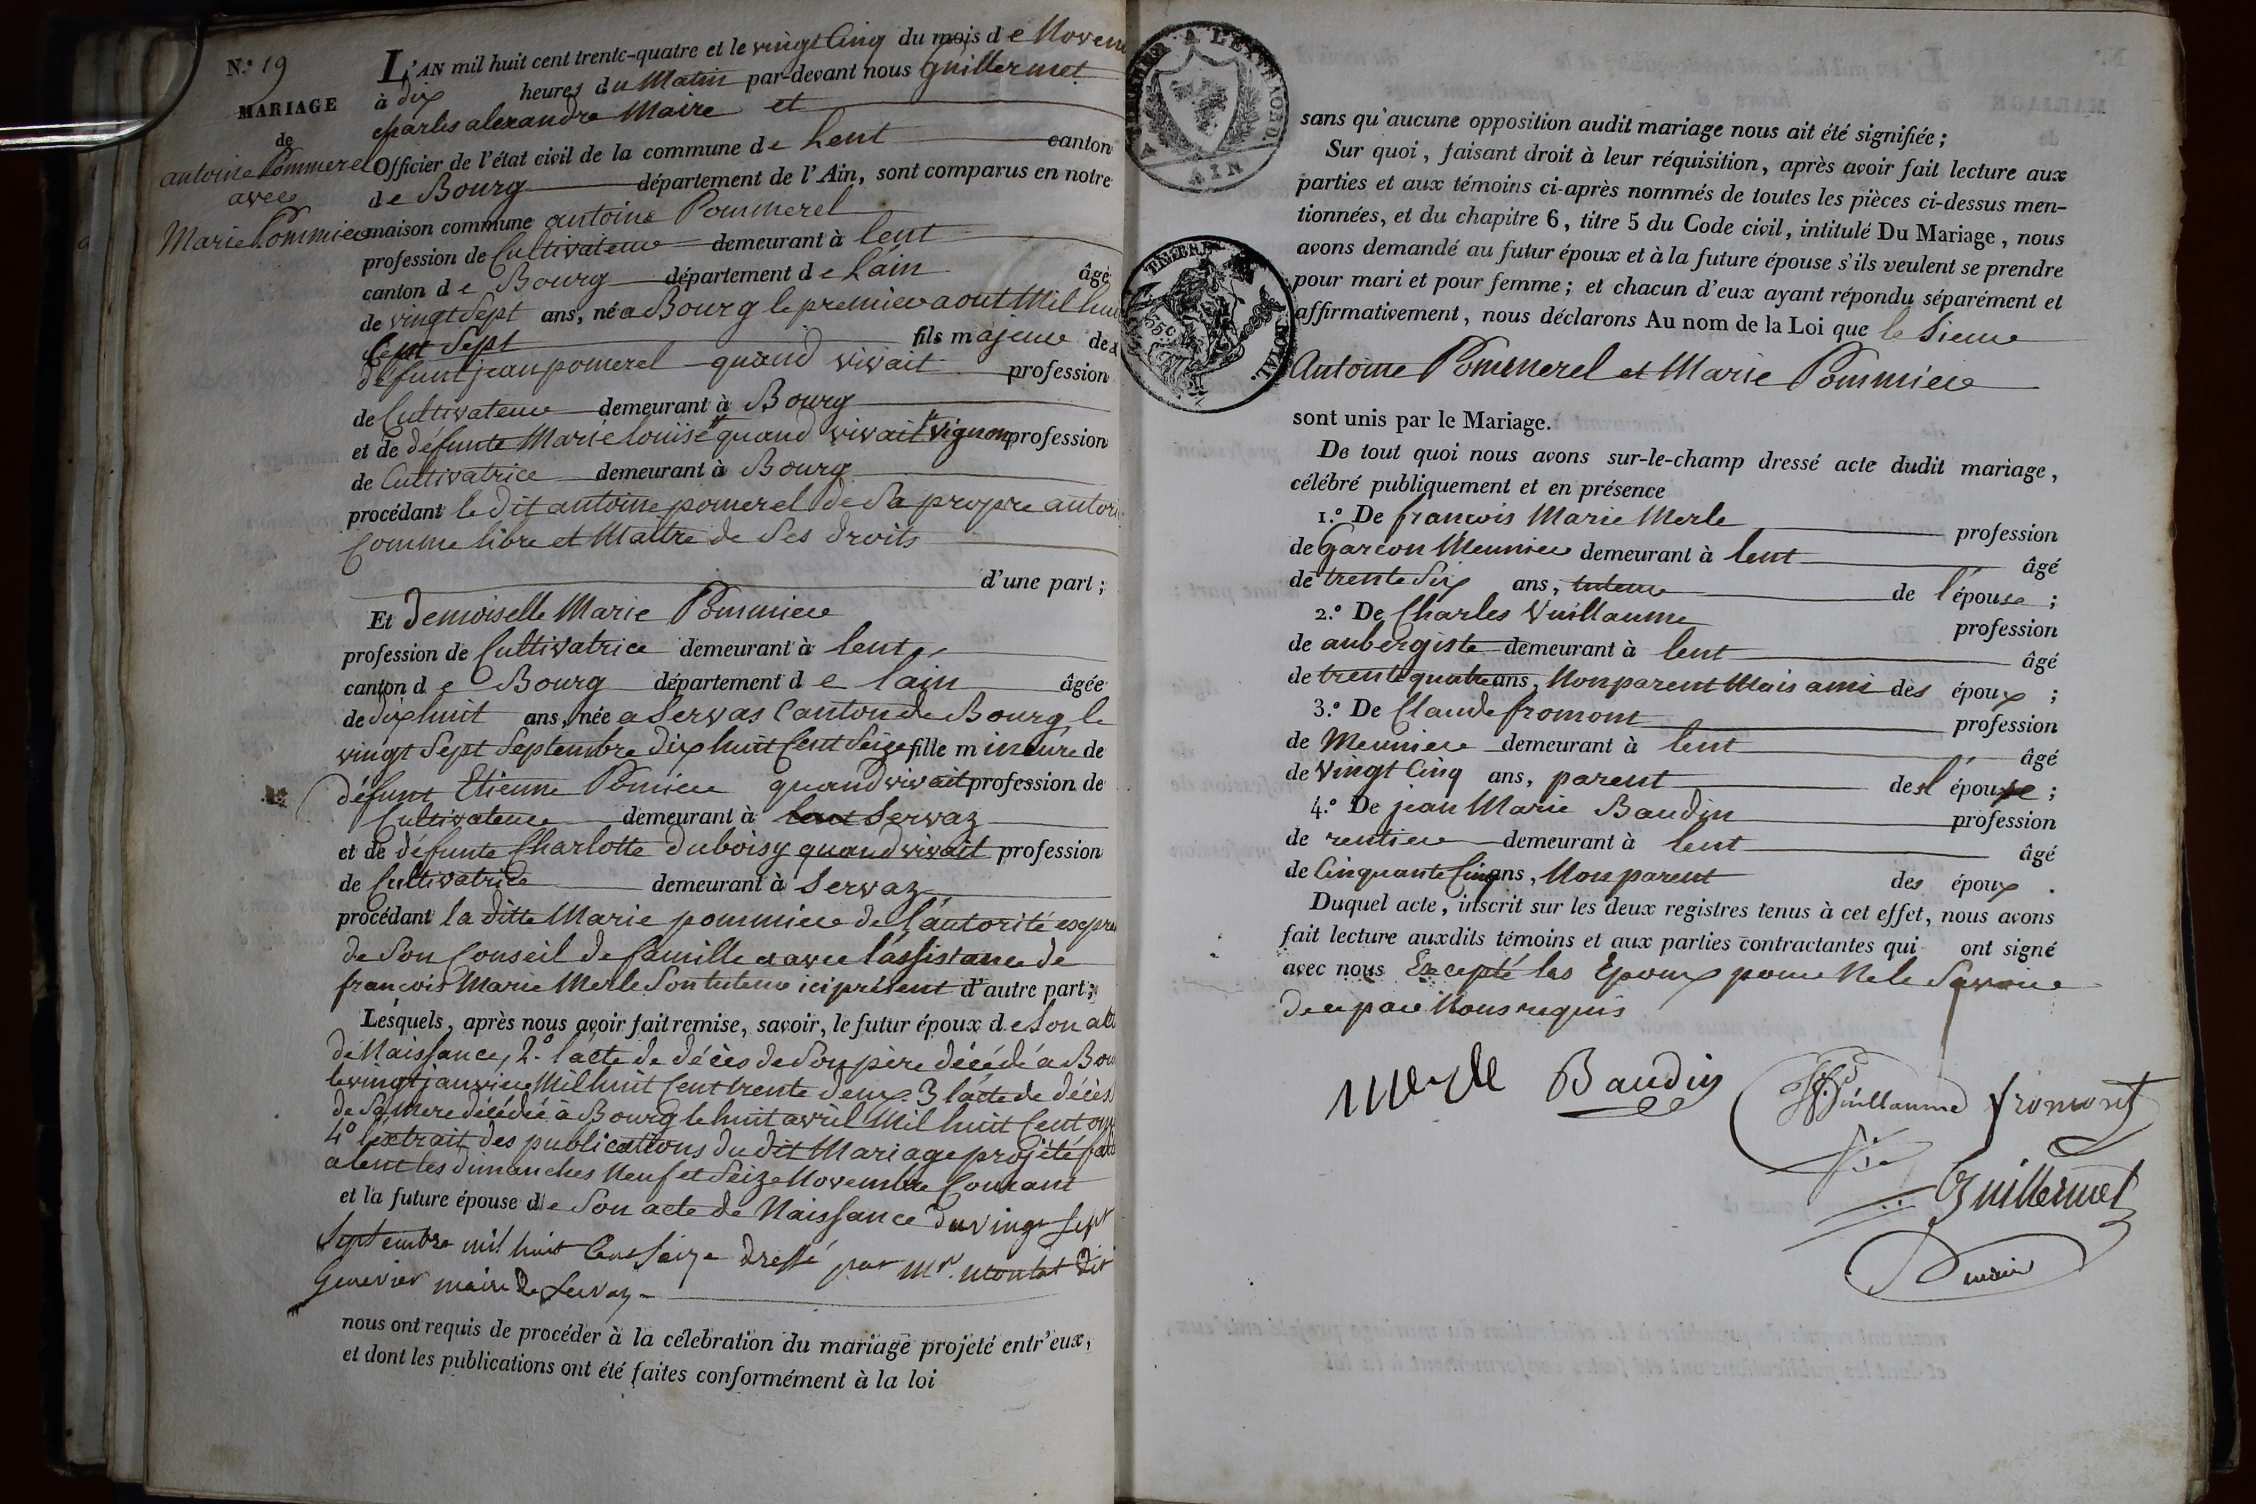 N.º 19
MARIAGE
de
antoine Pommerel
avec
Marie Pommier
L'AN mil huit cent trente-quatre et le vingt Cinq du mois de Novem
à dix heures du Matin par-devant nous Guillermet
charles alexandre Maire et
Officier de l'état civil de la commune de Lent canton
de Bourg département de l'Ain, sont comparus en notre
maison commune antoine Pommerel
profession de Cultivateur demeurant à lent
canton de Bourg département de L'ain âgé
de vingt Sept ans, né a Bourg le premier aout Mil huit
Cent Sept fils majeur de
défunt jean pomerel quand vivait profession
de Cultivateur demeurant à Bourg
et de défunte Marie Louise " quand vivait " Vignon profession
de Cultivatrice demeurant à Bourg
procédant le dit antoine pomerel de Sa propre autori
Comme libre et Maitre de Ses droits
d'une part ;
Et Demoiselle Marie Pommier
profession de Cultivatrice demeurant à lent
canton de Bourg département de lain âgée
de dix huit ans, née a Servas Canton de Bourg le
vingt Sept Septembre dix huit Cent Seize fille mineure de
défunt Etienne Pomier quand vivait profession de
Cultivateur demeurant à lent Servaz
et de défunte Charlotte Duboisy quand vivait profession
de Cultivatrice demeurant à Servaz
procédant la ditte Marie pommier de l'autorité expre
de Son Conseil de famille et avec l'assistance de
françois Marie Merle Son tuteur ici présent d'autre part ;
Lesquels, après nous avoir fait remise, savoir, le futur époux de Son act
de Naissance, 2.º l'acte de décès de Son père décédé a Bou
le vingt janvier Mil huit Cent trente deux. 3 l'acte de décès
de Sa Mere décédée à Bourg le huit avril Mil huit Cent onz
4º l'extrait des publications du dit Mariage projeté fait
a lent les dimanches Neuf et Seize Novembre Courant
et la future épouse de Son acte de Naissance du vingt Sept
Septembre mil huit Cent Seize dressé par Mr. Montat dit
Genevier maire de Servaz
nous ont requis de procéder à la célebration du mariage projeté entr'eux,
et dont les publications ont été faites conformément à la loi
A L'EXTRAORD.
AIN
TIMBRE ROYAL.
35c
sans qu'aucune opposition audit mariage nous ait été signifiée ;
Sur quoi, faisant droit à leur réquisition, après avoir fait lecture aux
parties et aux témoins ci-après nommés de toutes les pièces ci-dessus men-
tionnées, et du chapitre 6, titre 5 du Code civil, intitulé Du Mariage, nous
avons demandé au futur époux et à la future épouse s'ils veulent se prendre
pour mari et pour femme ; et chacun d'eux ayant répondu séparément et
affirmativement, nous déclarons Au nom de la Loi que le Sieur
Antoine Pommerel et Marie Pommier
sont unis par le Mariage.
De tout quoi nous avons sur-le-champ dressé acte dudit mariage,
célébré publiquement et en présence
1.º De francois Marie Merle profession
de Garcon Meunier demeurant à lent âgé
de trente Six ans, tuteur de l'épouse ;
2.º De Charles Vuillaume profession
de aubergiste demeurant à lent âgé
de trente quatre ans, Non parent Mais ami des époux ;
3.º De Claude fromont profession
de Meunier demeurant à lent âgé
de Vingt Cinq ans, parent de l'épouse ;
4.º De jean Marie Baudin profession
de rentier demeurant à lent âgé
de Cinquante Cinq ans, Non parent des époux .
Duquel acte, inscrit sur les deux registres tenus à cet effet, nous avons
fait lecture auxdits témoins et aux parties contractantes qui ont signé
avec nous Excepté les Epoux pour Ne le Savoir
De ce par Nous requis
Merle Baudin Vuillaume fromont
Guillermet
maire